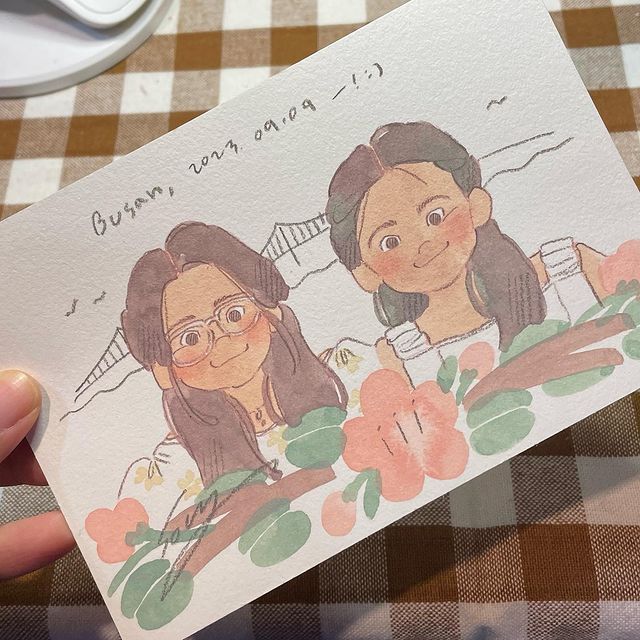 Busan, 2023. 09.09 —! :)